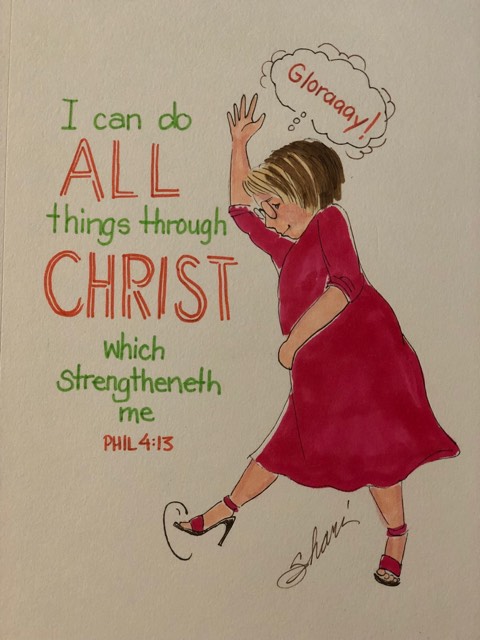 Gloraaay!
I can do
ALL
things through
CHRIST
which
strengtheneth
me
PHIL 4:13
Shari